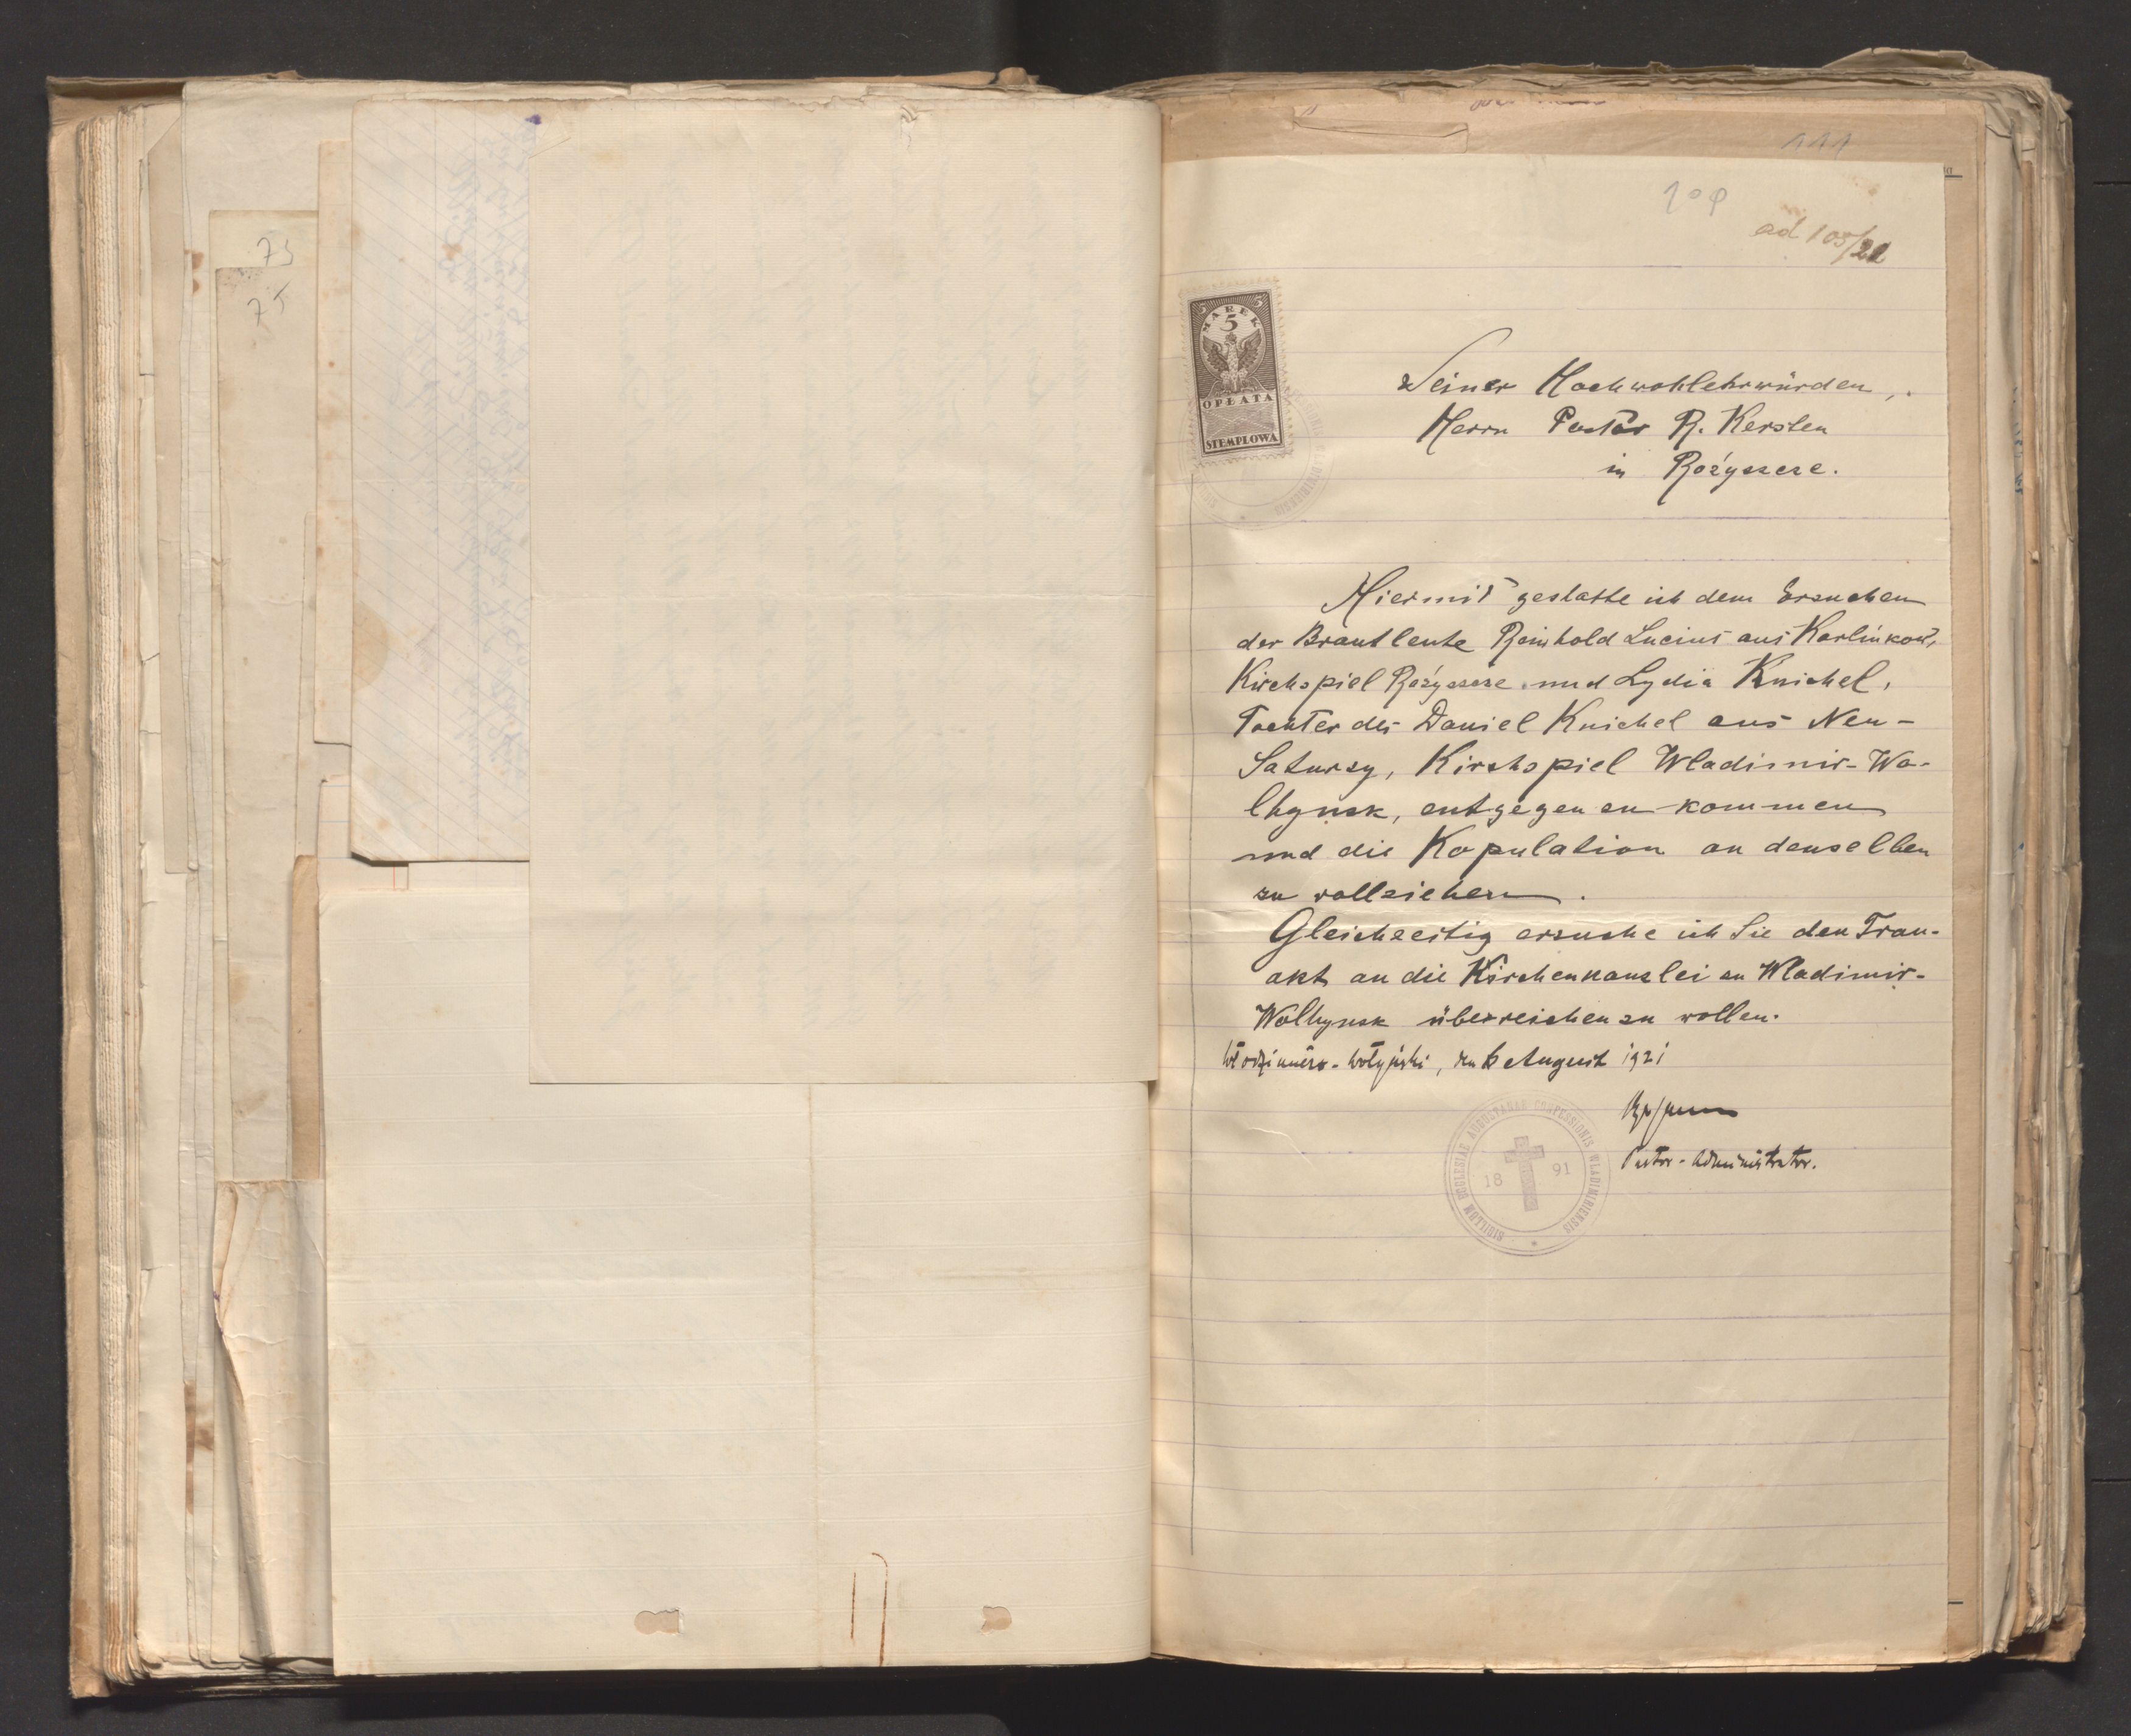 73
75
111
109
ad 105/21
5 5
MAREK
5
OPŁATA
STEMPLOWA
Seiner Hochwohlehrwürden,
Herrn Pastor R. Kersten
in Rożyszcze.
Hiermit gestatte ich dem Ersuchen
der Brautleute Reinhold Lucius aus Karlinkow,
Kirchspiel Rożyszcze und Lydia Knichel,
Tochter des Daniel Knichel aus Neu-
Saturzy, Kirchspiel Wladimir-Wo-
lhynsk, entgegen zu kommen
und die Kopulation an denselben
zu vollziehen.
Gleichzeitig ersuche ich Sie den Trau-
akt an die Kirchenkanzlei zu Wladimir-
Wolhynsk überreichen zu wollen.
Włodzimierz-Wołyński, den 6 August 1921
Pastor-Administrator.
SIGILLUM ECCLESIAE AUGUSTANAE CONFESSIONIS WLADIMIRIENSIS
18 91